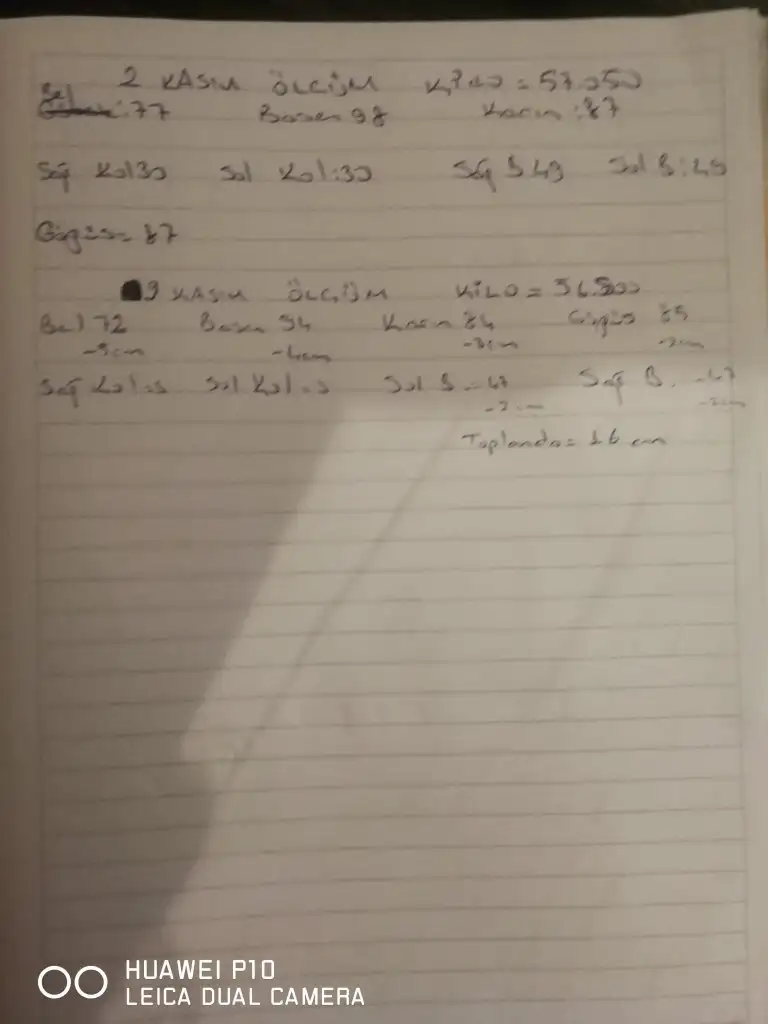 2 KASIM ÖLÇÜM KİLO = 57.050
Bel : 77 Basen 98 Karın : 87
Sağ Kol 30 Sol Kol : 30 Sağ B 49 Sol B : 49
Göğüs = 87
9 KASIM ÖLÇÜM KİLO = 56.500
Bel 72 Basen 94 Karın 84 Göğüs 85
-5cm -4cm -3cm -2cm
Sağ Kol Sol Kol Sol B - 47 Sağ B. - 47
-2cm -2cm
Toplamda = 16 cm
HUAWEI P10
LEICA DUAL CAMERA